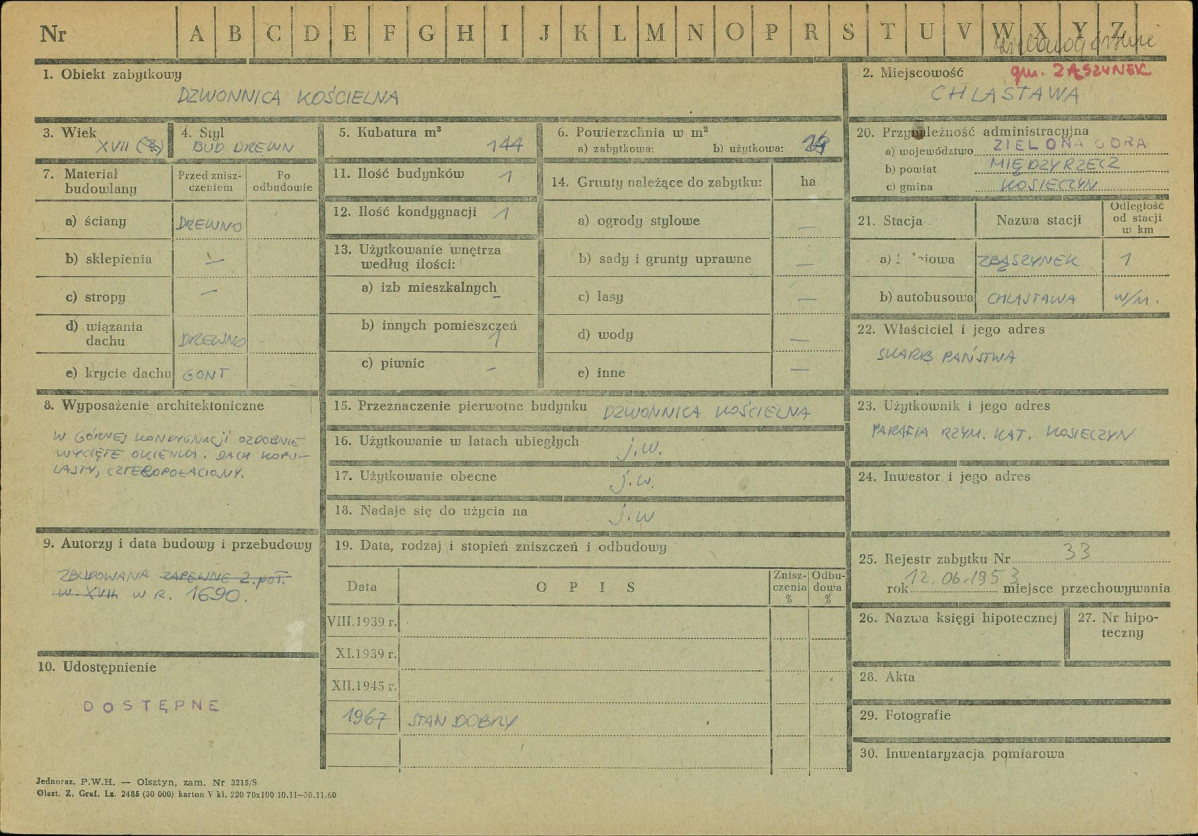 Nr A B C D E F G H I J K L M N O P R S T U V W X Y Z
1. Obiekt zabytkowy
DZWONNICA KOŚCIELNA
2. Miejscowość
gm. ZĄSZYNEK
CHLASTAWA
3. Wiek
XVII
4. Styl
BUD DREWN
5. Kubatura m³
144
6. Powierzchnia w m²
a) zabytkowa: b) użytkowa:
7. Materiał budowlany
Przed znisz-
czeniem
Po
odbudowie
a) ściany DREWNO
b) sklepienia —
c) stropy —
d) wiązania
dachu DREWNO
e) krycie dachu GONT
8. Wyposażenie architektoniczne
W GÓRNEJ KONDYGNACJI OZDOBNIE
WYCIĘTE OKIENKA. DACH KOPU-
LASTY, CZTEROPOŁACIOWY.
9. Autorzy i data budowy i przebudowy
ZBUDOWANA ZAPEWNE 2. POŁ.
W. XVII W R. 1690.
10. Udostępnienie
DOSTĘPNE
11. Ilość budynków 1
12. Ilość kondygnacji 1
13. Użytkowanie wnętrza
według ilości:
a) izb mieszkalnych —
b) innych pomieszczeń 1
c) piwnic —
14. Grunty należące do zabytku: ha
a) ogrody stylowe —
b) sady i grunty uprawne —
c) lasy —
d) wody —
e) inne —
15. Przeznaczenie pierwotne budynku DZWONNICA KOŚCIELNA
16. Użytkowanie w latach ubiegłych j.w.
17. Użytkowanie obecne j.w.
18. Nadaje się do użycia na j.w
19. Data, rodzaj i stopień zniszczeń i odbudowy
Data O P I S
Znisz-
czenia
%
Odbu-
dowa
%
VIII.1939 r.
XI.1939 r.
XII.1945 r.
1967 STAN DOBRY
20. Przynależność administracyjna
a) województwo ZIELONA GÓRA
b) powiat MIĘDZYRZECZ
c) gmina KOSIECZYN
21. Stacja Nazwa stacji
Odległość
od stacji
w km
a) ZBĄSZYNEK 1
b) autobusowa CHLASTAWA W/M.
22. Właściciel i jego adres
SKARB PAŃSTWA
23. Użytkownik i jego adres
PARAFIA RZYM. KAT. KOSIECZYN
24. Inwestor i jego adres
25. Rejestr zabytku Nr 33
rok 12.06.1953 miejsce przechowywania
26. Nazwa księgi hipotecznej
27. Nr hipo-
teczny
28. Akta
29. Fotografie
30. Inwentaryzacja pomiarowa
Jednoraz. P.W.H. — Olsztyn, zam. Nr 3215/S
Olszt. Z. Graf. Lz. 2485 (30 000) karton V kl. 220 70x100 10.11—30.11.60